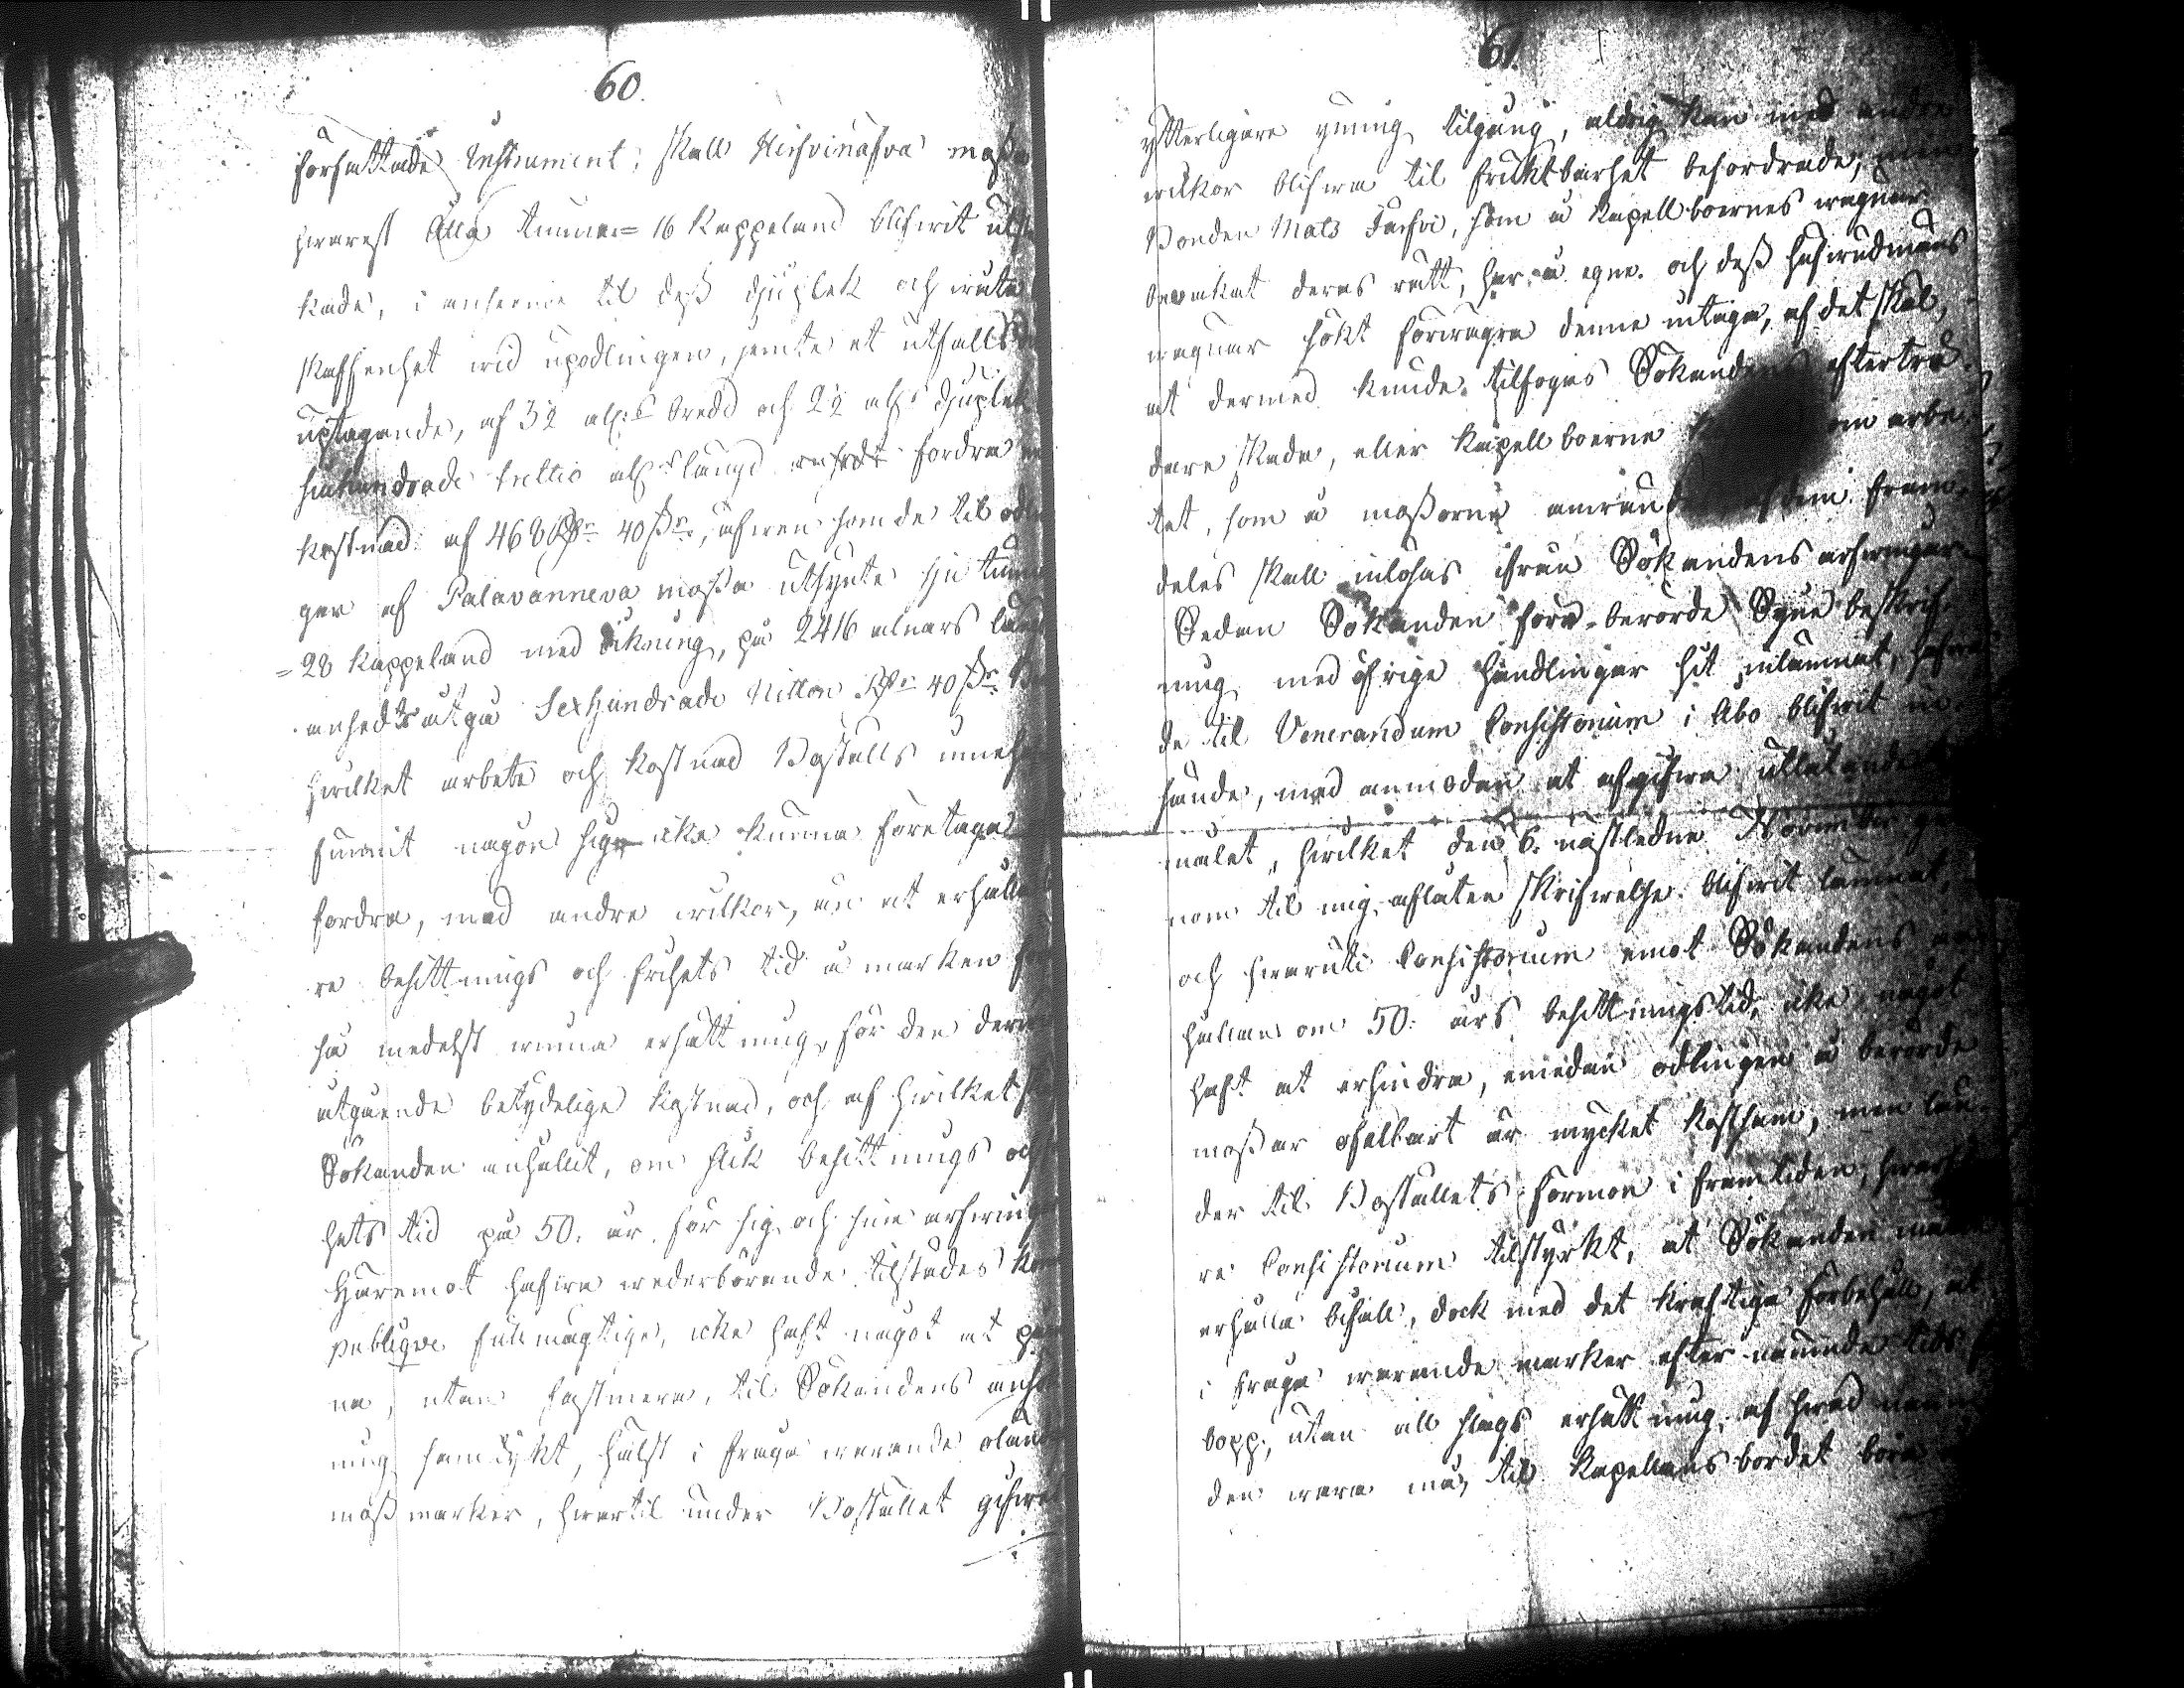 60.
författade Instrument; skall Hirfvinäfva mossa
hvarest Ålla tunnor= 16 Kappeland blifvit utst
kade, i anseende til dess djuplek och
skaffenhet vid upodlingen, jemte et utfalls
uptagande, af 3½ aln:s bredd och 2½ aln:s djuplek
hundrade trettio aln:s längd fordra en
kostnad af 468 Rdr 40 s:, äfven som de til odlin
gar af Palavanneva mossa utsynte Sju tunn
= 28 Kappeland med dikning, på 2416 alnars läng
anses utgå Sexhundrade Nitton Rdr 40 s:
hvilket arbete och kostnad Boställs inneh
funnit någon sig icke kunna företaga
fordra, med andre vilkor, än at erhålla
re besittnings och frihets tid å marken för
så medelst vinna ersättning, för den derm
utgående betydelige kostnad, och af hvilket
Sökanden anhållit, om slik besittnings och
hets tid på 50. år, för sig och sine arfvingar
Häremot hafva vederbörande tilstädes kom
publique fullmägtige, icke haft något at på
na, utan fastmera, til Sökandens anhå
ning samtykt, hälst i fråga varande oländ
moss marker, hvartil under Bostället gifves
61.
ytterligare ymnig tilgång, aldrig kan med andre
vilkor blifva til fruktbarhet befordrade; men
Bonden Mats Jacfvi, som å Kapellboernes vägnar
bevakat deras rätt, har å egne och dess hufvudmans
vägnar sökt förvägra denne intaga, af det skäl,
at dermed kunde tilfogas Sökandens efterträ-
dare skada, eller Kapellboerne om arbe-
tet, som å mossorne använd dem fram-
deles skall inlösas ifrån Sökandens arfvingar.
Sedan Sökanden förr-berörde Syne beskrif-
ning med öfrige handlingar hit inlämnat, hafva
de til Venerandum Consistorium i Åbo blifvit öf-
sände, med anmodan at afgifva utlåtande
målet, hvilket den 6. nästledne November ge-
nom til mig aflåten skrifvelse blifvit lämnat,
och hvaruti Consistorium emot Sökandens an-
hållan om 50. års besittningstid, icke något
haft at erhindra, emedan odlingen å berörde
mossar ofelbart är mycket kostsam, men län-
der til Boställets förmon i framtiden, hvarföre
re Consistorium tilstyrkt, at Sökanden må
erhålla bifall, dock med det kraftiga förbehåll, at
i fråga varande marker efter nämnde tids för-
lopp, utan all slags ersättning, af hvad namn
den vara må, til Kapellans bordet böra